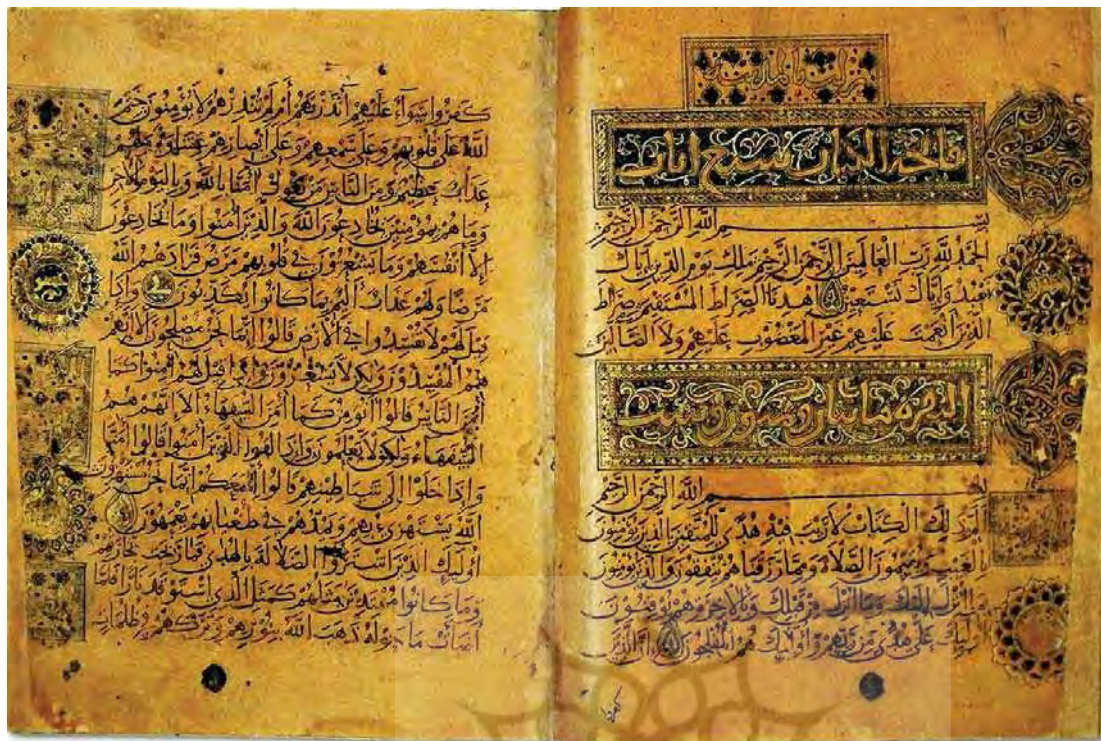 فاتحة الكتاب سبع ايات
بسم الله الرحمن الرحيم
الحمد لله رب العالمين الرحمن الرحيم ملك يوم الدين اياك
نعبد واياك نستعين اهدنا الصراط المستقيم صراط
الذين انعمت عليهم غير المغضوب عليهم ولا الضالين
البقرة مايتان وثمنون وست
بسم الله الرحمن الرحيم
الم ذلك الكتاب لا ريب فيه هدى للمتقين الذين يؤمنون
بالغيب ويقيمون الصلاة ومما رزقناهم ينفقون والذين يؤمنون
بما انزل اليك وما انزل من قبلك وبالاخرة هم يوقنون
اوليك على هدى من ربهم واوليك هم المفلحون ان الذين
كفروا سواء عليهم أأنذرتهم أم لم تنذرهم لا يؤمنون ختم
الله على قلوبهم وعلى سمعهم وعلى ابصارهم غشاوة ولهم
عذاب عظيم ومن الناس من يقول امنا بالله وباليوم الاخر
وما هم بمؤمنين يخادعون الله والذين امنوا وما يخادعون
إلا أنفسهم وما يشعرون في قلوبهم مرض فزادهم الله
مرضا ولهم عذاب اليم بما كانوا يكذبون واذا
قيل لهم لا تفسدوا في الأرض قالوا انما نحن مصلحون ألا انهم
هم المفسدون ولكن لا يشعرون واذا قيل لهم امنوا كما
أمن الناس قالوا انؤمن كما امن السفهاء الا انهم هم
السفهاء ولكن لا يعلمون واذا لقوا الذين امنوا قالوا امنا
واذا خلوا الى شياطينهم قالوا انا معكم انما نحن مستهزؤن
الله يستهزئ بهم ويمدهم في طغيانهم يعمهون
اوليك الذين اشتروا الضلالة بالهدى فما ربحت تجارتهم
وما كانوا مهتدين مثلهم كمثل الذي استوقد نارا فلما
أضاءت ما حوله ذهب الله بنورهم وتركهم في ظلمات